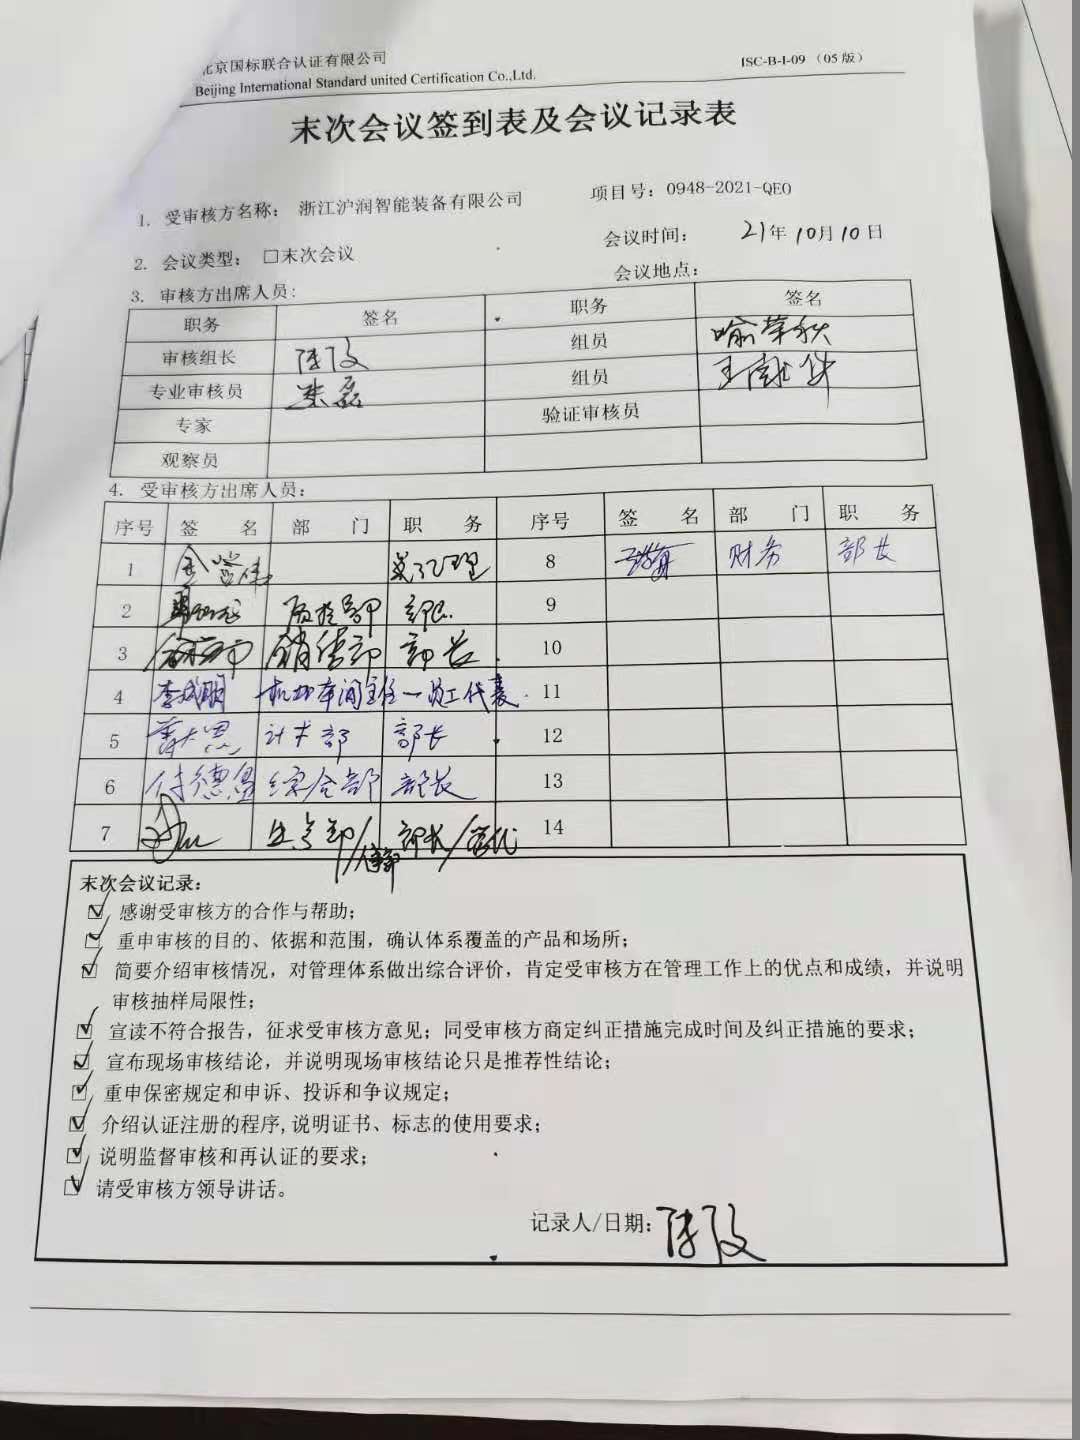 北京国标联合认证有限公司
Beijing International Standard united Certification Co.,Ltd.
ISC-B-I-09 (05版)
末次会议签到表及会议记录表
1. 受审核方名称: 浙江沪润智能装备有限公司 项目号: 0948-2021-QEO
2. 会议类型: □末次会议 会议时间: 21年10月10日
会议地点:
3. 审核方出席人员:
职务 签名 职务 签名
审核组长 组员 喻荣秋
专业审核员 朱磊 组员
专家 验证审核员
观察员
4. 受审核方出席人员:
序号 签名 部门 职务 序号 签名 部门 职务
1 总经理 8 财务 部长
2 质检部 部长 9
3 销售部 部长 10
4 机加车间主任一员工代表 11
5 计术部 部长 12
6 付德盈 综合部 部长 13
7 生产部 部长 14
末次会议记录:
☑ 感谢受审核方的合作与帮助;
☑ 重申审核的目的、依据和范围，确认体系覆盖的产品和场所;
☑ 简要介绍审核情况，对管理体系做出综合评价，肯定受审核方在管理工作上的优点和成绩，并说明
审核抽样局限性;
☑ 宣读不符合报告，征求受审核方意见; 同受审核方商定纠正措施完成时间及纠正措施的要求;
☑ 宣布现场审核结论，并说明现场审核结论只是推荐性结论;
☑ 重申保密规定和申诉、投诉和争议规定;
☑ 介绍认证注册的程序,说明证书、标志的使用要求;
☑ 说明监督审核和再认证的要求;
☑ 请受审核方领导讲话。
记录人/日期: